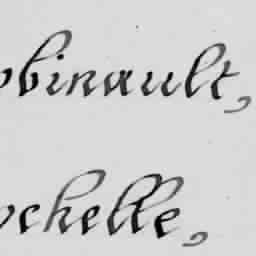 obinault,
ochelle,